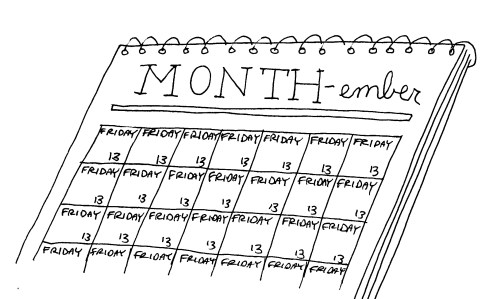 MONTH-ember
FRIDAY FRIDAY FRIDAY FRIDAY FRIDAY FRIDAY FRIDAY
13 13 13 13 13 13 13
FRIDAY FRIDAY FRIDAY FRIDAY FRIDAY FRIDAY FRIDAY
13 13 13 13 13 13 13
FRIDAY FRIDAY FRIDAY FRIDAY FRIDAY FRIDAY FRIDAY
13 13 13 13 13 13 13
FRIDAY FRIDAY FRIDAY FRIDAY FRIDAY FRIDAY FRIDAY